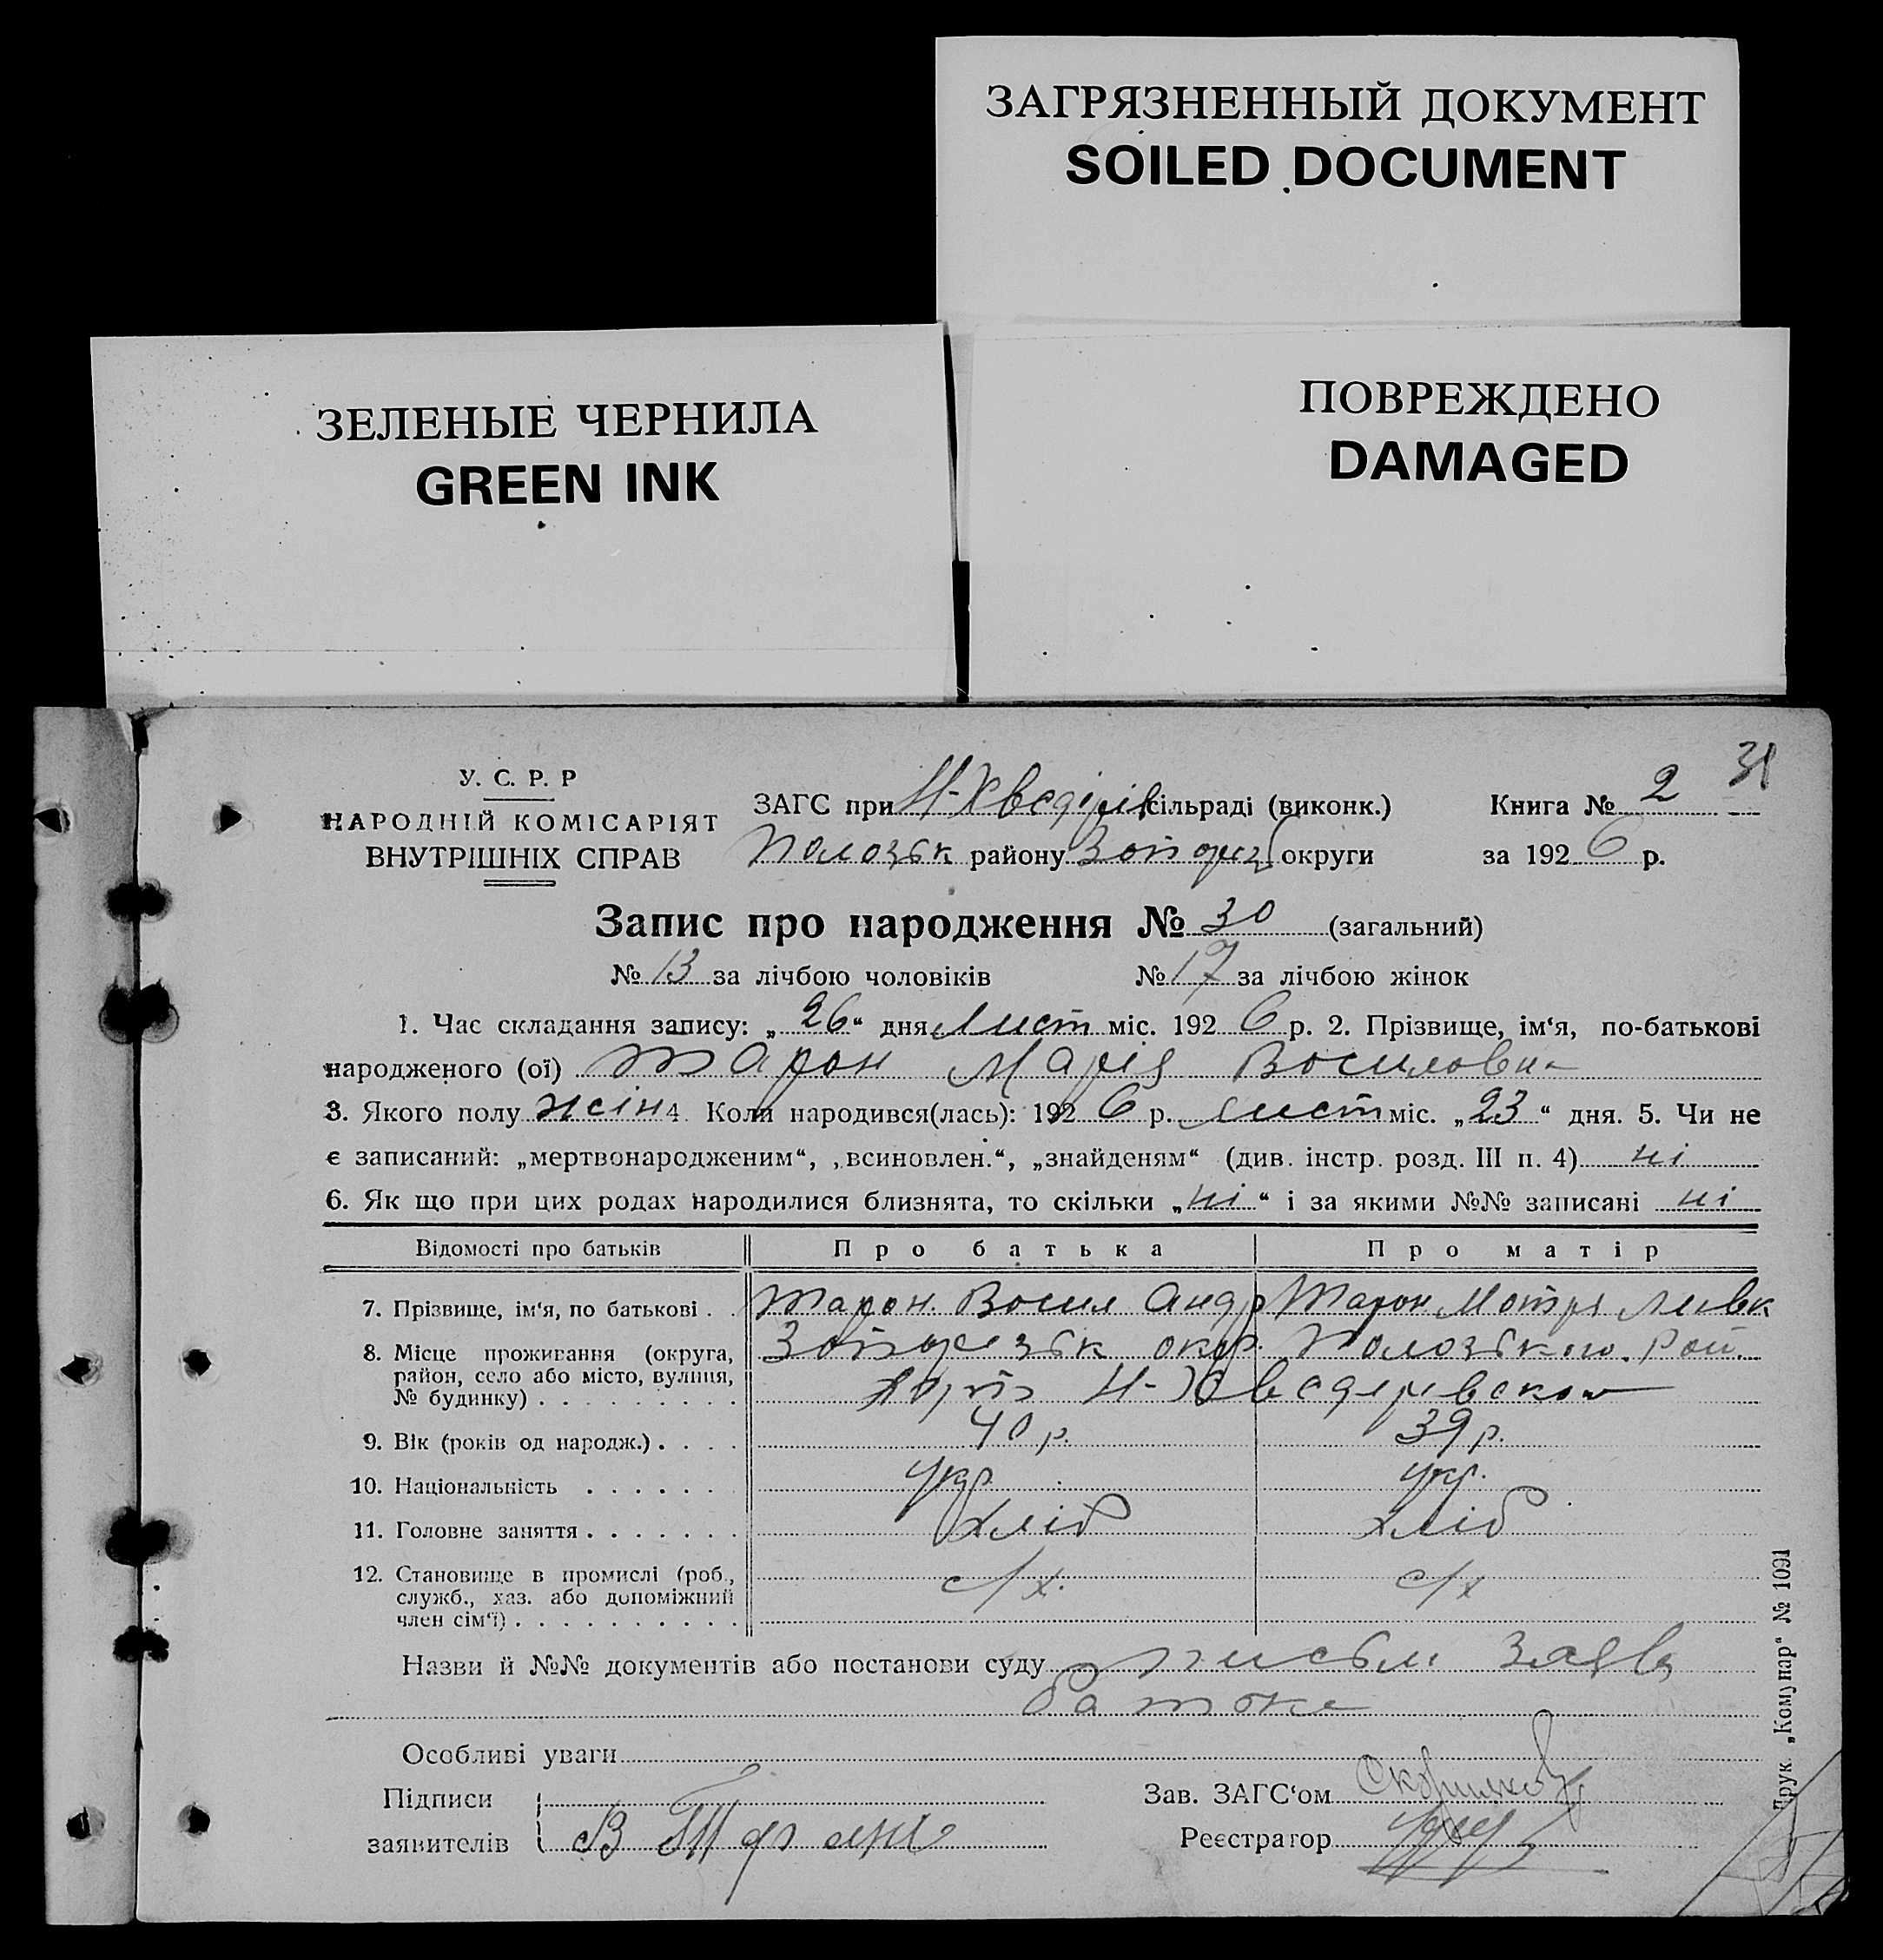 ЗАГРЯЗНЕННЫЙ ДОКУМЕНТ
SOILED DOCUMENT
ЗЕЛЕНЫЕ ЧЕРНИЛА
GREEN INK
ПОВРЕЖДЕНО
DAMAGED
31
У. С. Р. Р
НАРОДНІЙ КОМІСАРІЯТ
ВНУТРІШНІХ СПРАВ
ЗАГС при Н-Хведорів сільраді (виконк.) Книга № 2
Полозьк району Запоріз округи за 1926 р.
Запис про народження № 30 (загальний)
№ 13 за лічбою чоловіків № 17 за лічбою жінок
1. Час складання запису: „26“ дня Лист міс. 1926 р. 2. Прізвище, ім‘я, по-батькові
народженого (ої) Таран Марія Василовна
3. Якого полу жін 4. Коли народився(лась): 1926 р. лист міс. „23“ дня. 5. Чи не
є записаний: „мертвонародженим“, „всиновлен.“, „знайденям“ (див. інстр. розд. III п. 4) ні
6. Як що при цих родах народилися близнята, то скільки „ні“ і за якими №№ записані ні
Відомості про батьків Про батька Про матір
7. Прізвище, ім‘я, по батькові . . Таран Васил Андр Таран Мотря
8. Місце проживання (округа, район, село або місто, вулиця, № будинку) . . . . . . . . . Запорізьк окр. Полозького Рай.
Н-Хведоревском
9. Вік (років од народж.) . . . . 40 р. 39 р.
10. Національність . . . . . . укр. укр.
11. Головне заняття . . . . . . . хліб хліб
12. Становище в промислі (роб., служб., хаз. або допоміжний член сім‘ї) . . . . . . . . . . с/х. с/х
Назви й №№ документів або постанови суду письм заяв
батька
Особливі уваги
Підписи
заявителів В Таран
Зав. ЗАГС‘ом
Реєстратор
Друк. „Комунар“ № 1091